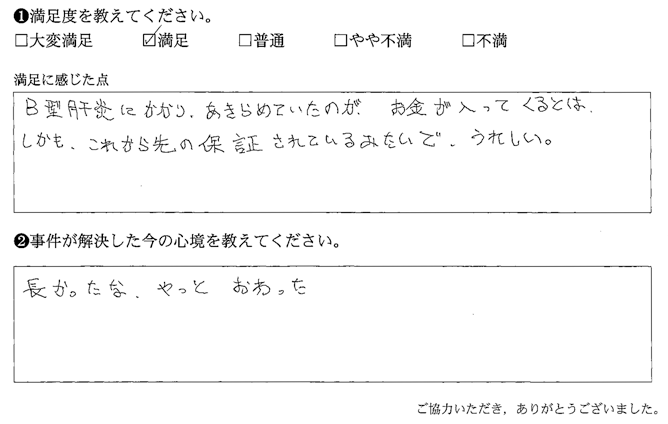 ❶満足度を教えてください。
□大変満足 ☑満足 □普通 □やや不満 □不満
満足に感じた点
B型肝炎にかかり、あきらめていたのが お金が入ってくるとは、
しかも、これから先の保証されているみたいで、うれしい。
❷事件が解決した今の心境を教えてください。
長かったな、やっと おわった
ご協力いただき，ありがとうございました。